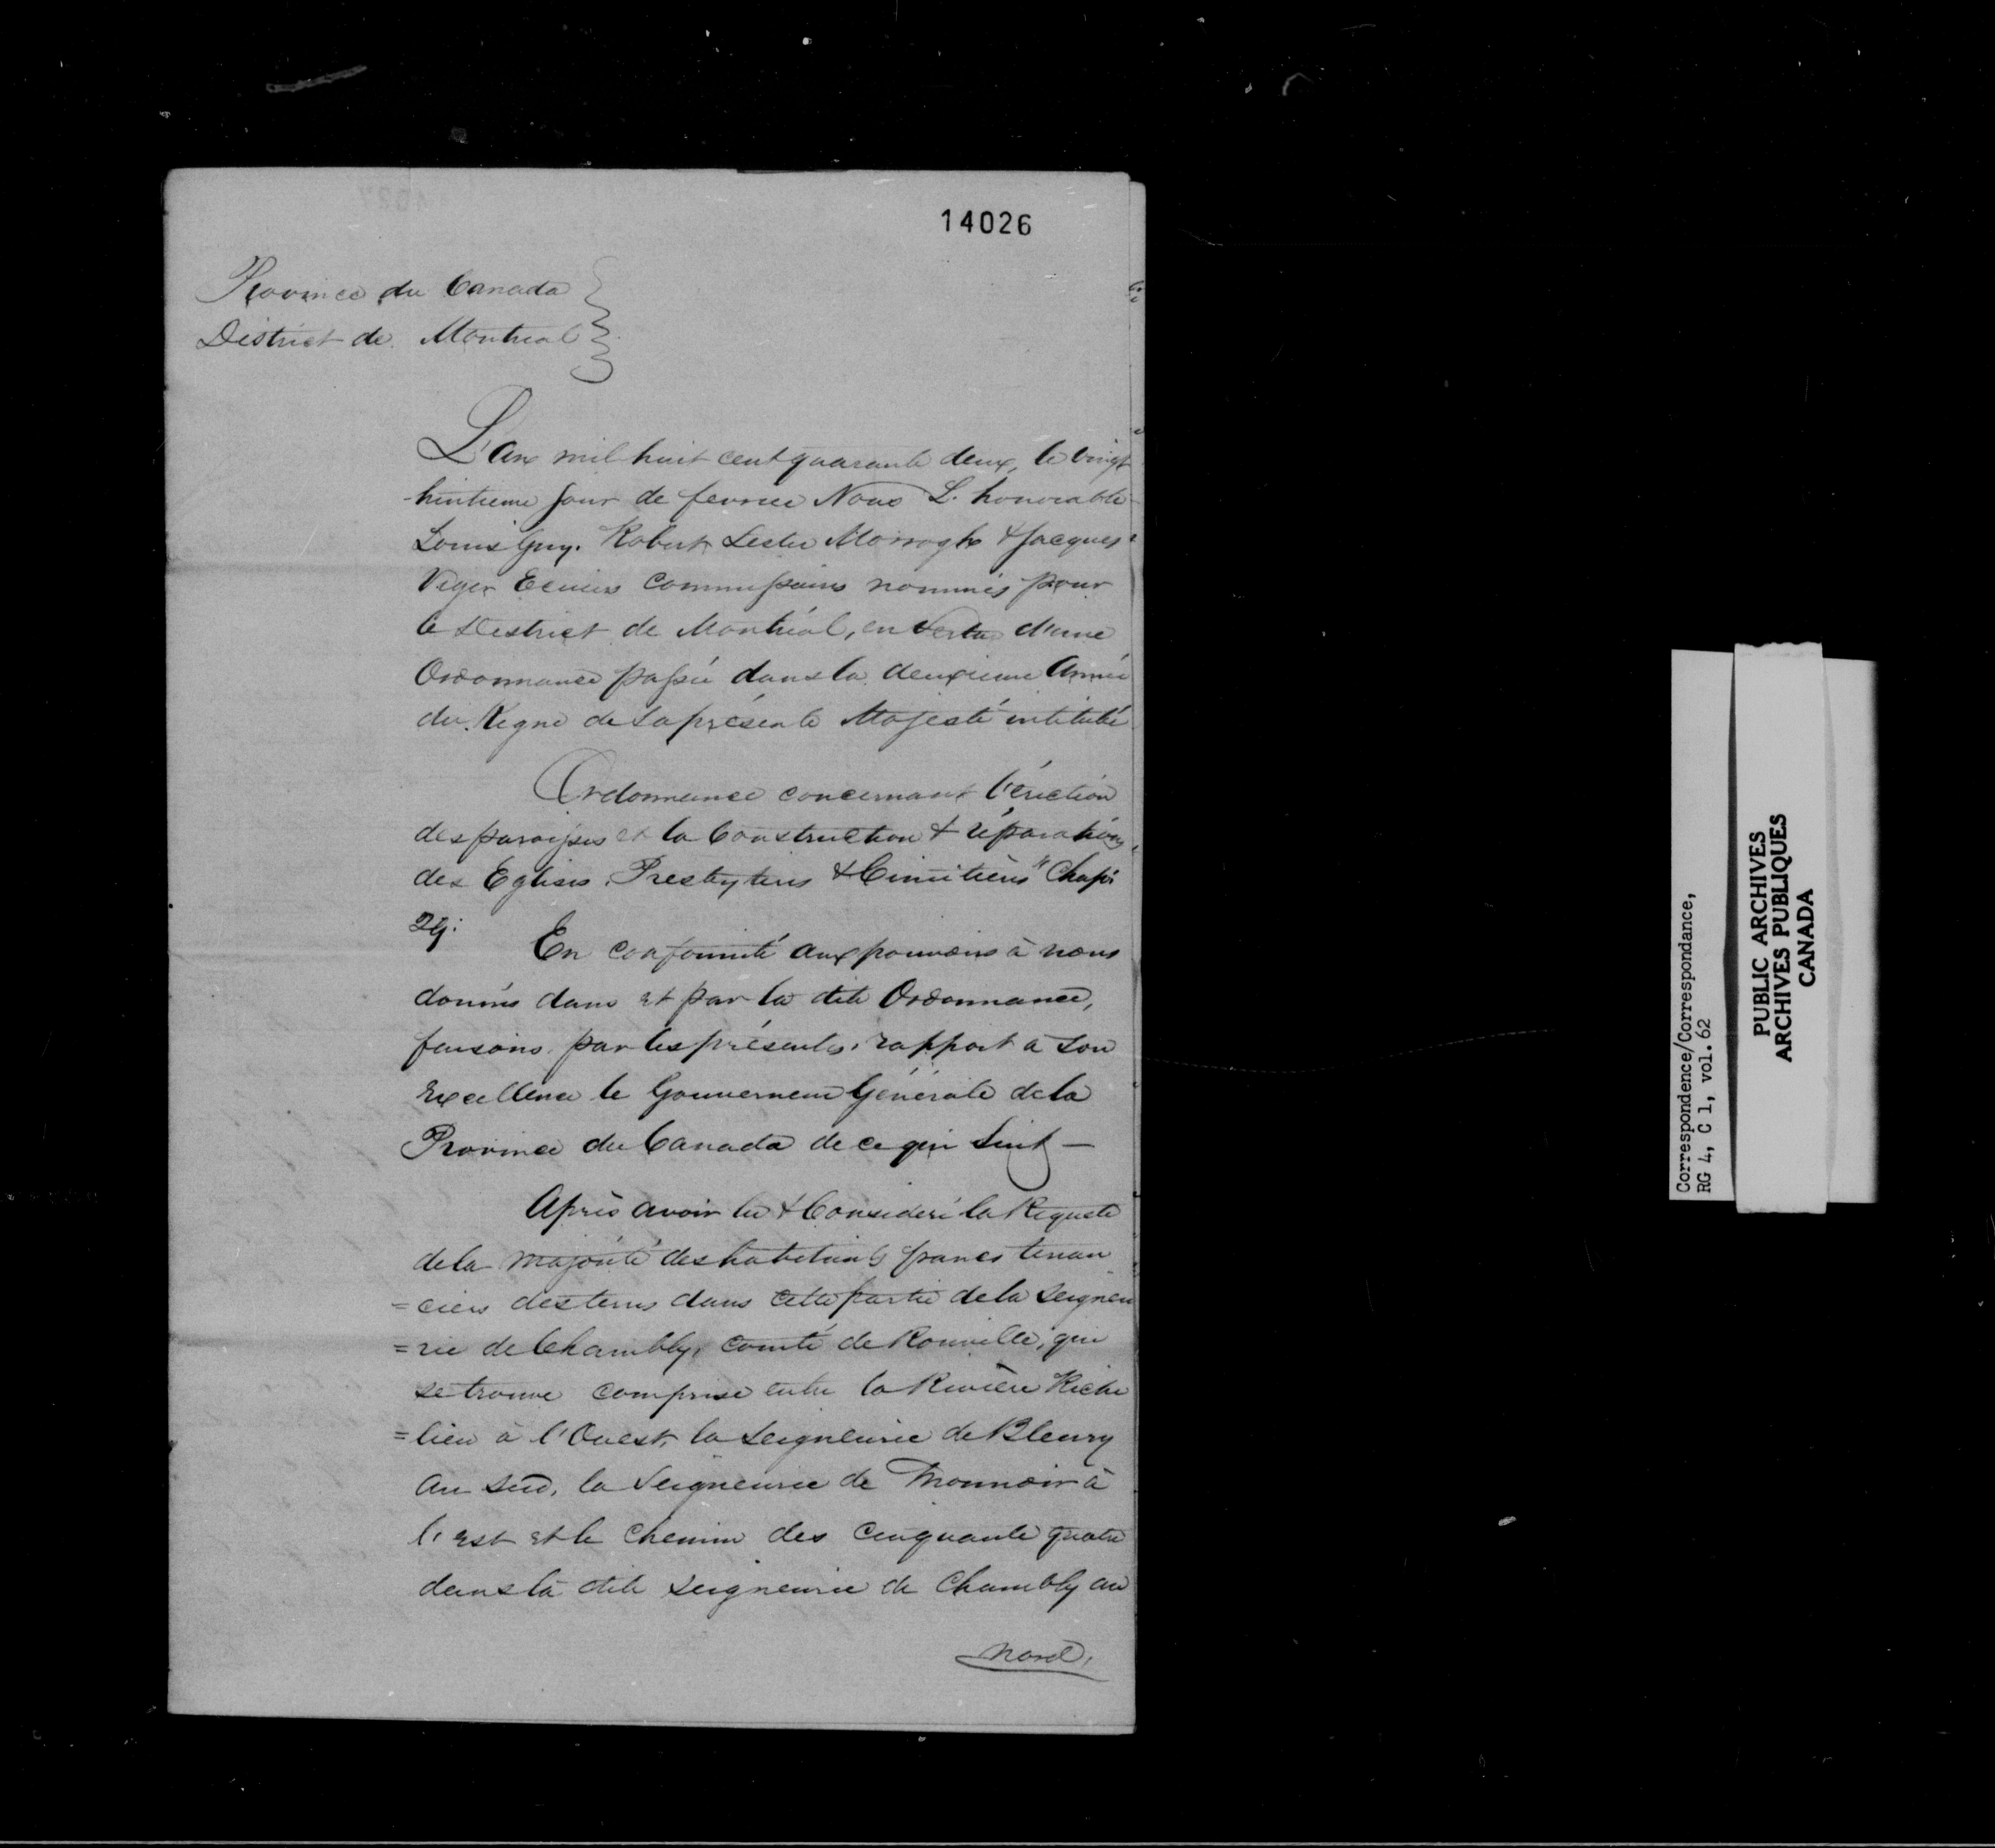 14026
Province du Canada
District de Montreal
L'an mil huit cent quarante deux, le vingt
-huitieme jour de fevrier Nous L. honorable
Louis Guy. Robert Lester Morrogh & Jacques
Viger Ecuiers Commissaires nommés pour
le District de Montréal, en vertu d'une
Ordonnance passée dans la deuxieme Année
du Regne de Sa présente Majesté intitulé
Ordonnance concernant l'érection
des paroisses et la Construction & réparations
des Eglises, Presbyteres & Cimitières" Chap:
29:
En conformité aux pouvoirs à nous
donnés dans et par la dite Ordonnance,
faisons par les présentes, rapport à Son
Excellence le Gouverneur Générale de la
Province du Canada de ce qui Suit —
Après avoir lu & Considéré la Requete
de la majorité des habitants francs tenan
=ciers des terres dans cette partie de la Seigneu
=rie de Chambly, comté de Rouville, qui
se trouve comprise entre la Rivière Riche
=lieu à l'Ouest, la Seigneurie de Bleury
au sud, la Seigneurie de Monnoir à
l'est et le Chemin des Cinquante quatre
dans la dite Seigneurie de Chambly au
nord,
Correspondence/Correspondance,
RG 4, C 1, vol. 62
PUBLIC ARCHIVES
ARCHIVES PUBLIQUES
CANADA